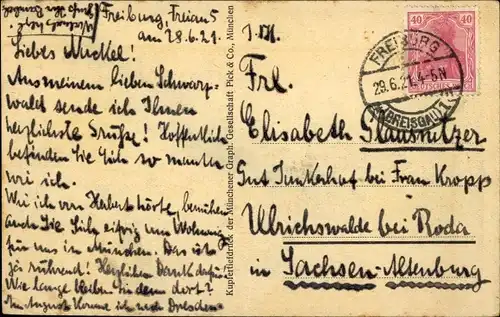 Freiburg, Freiau 5
am 28.6.21.
Liebes Muckel!
Aus meinem lieben Schwarz-
wald sende ich Ihnen
herzlichste Grüße! Hoffentlich
befinden Sie sich so munter
wie ich.
Wie ich von Herbert hörte, bemühen
auch Sie sich eifrig um Wohnung
für uns in München. Das ist
ja rührend! Herzlichen Dank dafür!
Wie lange bleiben Sie denn dort?
Im August komme ich nach Dresden
Kupfertiefdruck der Münchener Graph. Gesellschaft Pick & Co., München
40 40
FREIBURG
29.6.21. 4-5 N
(BREISGAU) 1
Frl.
Elisabeth Glausnitzer
Gut Junkerhof bei Frau Kropp
Ulrichswalde bei Roda
in Sachsen-Altenburg